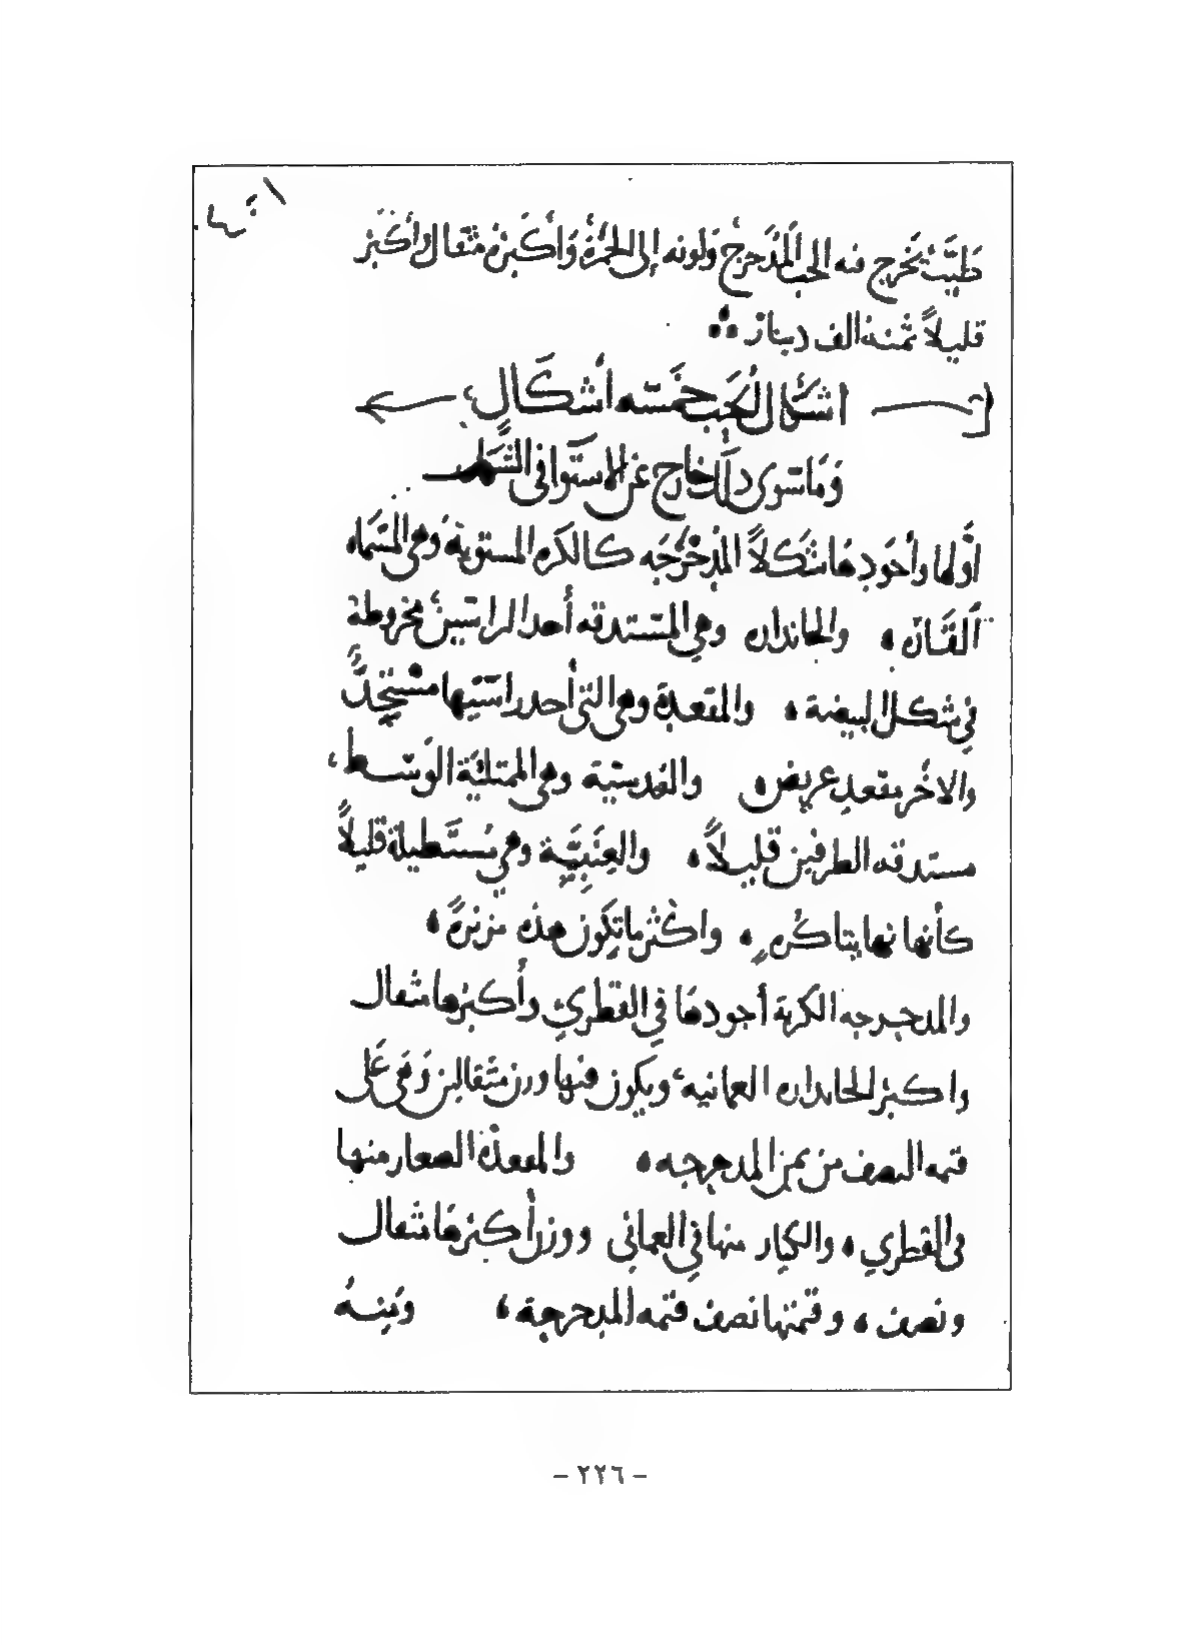 طَيَّبٌ يَخرج منه الحب المُدَحرج ولونه إلى الحُمْرَةُ وَأكبَرهُ مثقال وأكبَرُ
قليلاً ثمنه الف دينار
اشكال الحَب خمَسَه أشكَال
وَمَا سوى ذلك خارج عَن الاستوا فى
أوَّلها وأجوَدِهَا شَكلاً المُدَحْرَجَه كالكَره المستوية وَهى المسَّماه
القَاره والخانداره وهي المستدقه أحد الراسَين مخروطة
في شكل البيضة والمقعدة وهى التى أحد راسَيها
والاخر مقعد عريض والعدسيّة وهى الممتلئة الوَسَط
مستدقه الطرفين قليلاً والعِنَبيَّة وهي مُستَطيلة قليلاً
كأنها واكثر ما تكون هذه
والمدحرجه الكرية أجودهَا في القطري وأكبرها مثقال
واكبر الخانداره العمانيه ويكون منها وزن مثقالين وَهى عَلى
قيمه النصف من ثمن المدحرجه والمقعدة الصغار منها
فى القطري والكبار منها في العماني ووزن أكبرهَا مثقال
ونصف وقيمتها نصف قيمه المدحرجة
- ٢٢٦ -